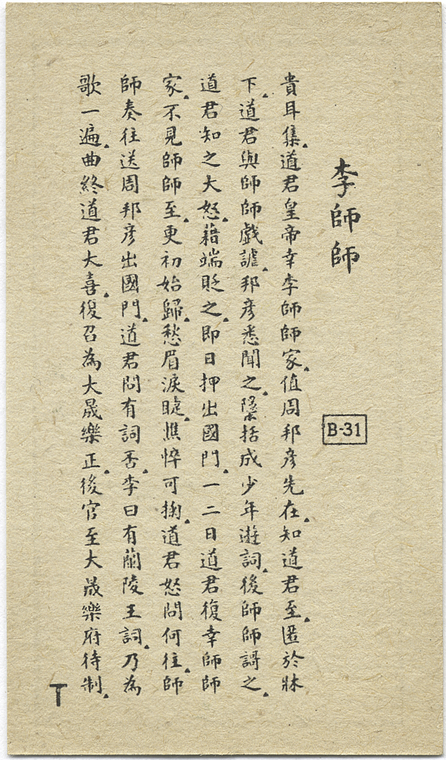 李師師
B-31
貴耳集▲道君皇帝幸李師師家▲值周邦彥先在知道君至▲匿於牀
下▲道君與師師戲謔▲邦彥悉聞之▲隱括成少年遊詞▲後師師謌之▲
道君知之大怒▲藉端貶之▲即日押出國門▲一二日道君復幸師師
家▲不見師師至▲更初始歸▲愁眉淚睫▲憔悴可掬▲道君怒問何往▲師
師奏往送周邦彥出國門▲道君問有詞否▲李曰有蘭陵王詞▲乃為
歌一遍▲曲終道君大喜▲復召為大晟樂正▲後官至大晟樂府待制▲
T